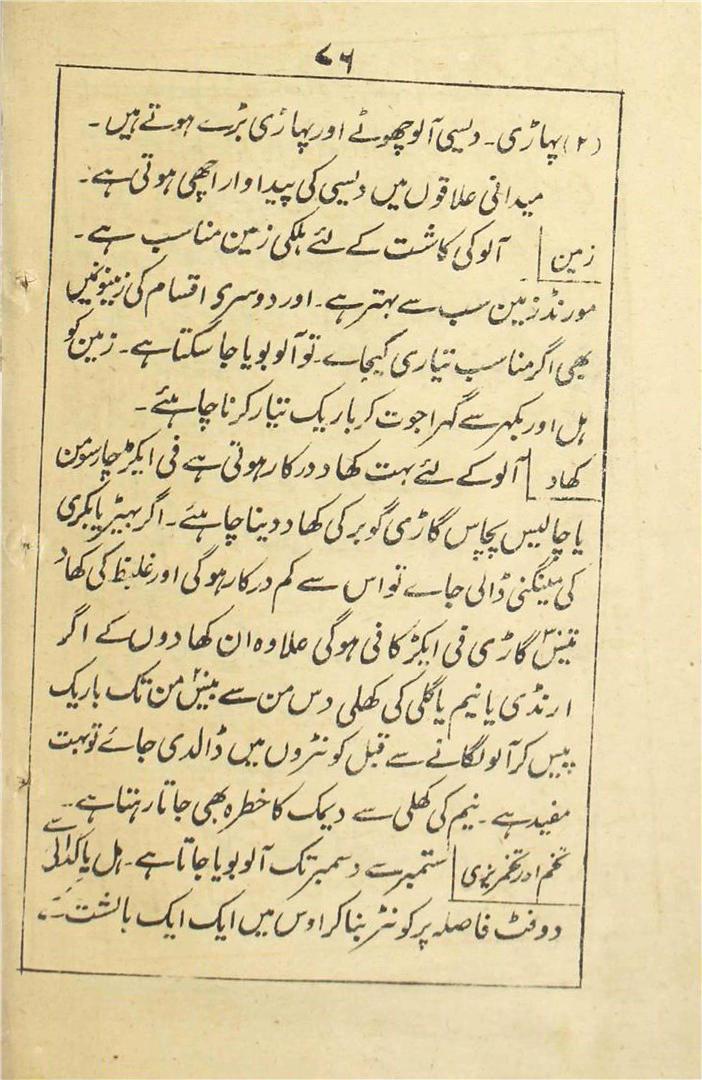 ۷۶
(۲) پہاڑی۔ دیسی آلو چھوٹے اور پہاڑی بڑے ہوتے ہیں۔
میدانی علاقوں میں دیسی کی پیداوار اچھی ہوتی ہے۔
زمین آلو کی کاشت کے لئے ہلکی زمین مناسب ہے۔
مورنڈ زمین سب سے بہتر ہے۔ اور دوسری اقسام کی زمینونمیں
بھی اگر مناسب تیاری کیجاے۔ تو آلو بویا جا سکتا ہے۔ زمین کو
ہل اور بکھر سے گہرا جوت کر باریک تیار کرنا چاہئے۔
کھاد آلو کے لئے بہت کھاد درکار ہوتی ہے فی ایکڑ چار سو من
یا چالیس پچاس گاڑی گوبر کی کھاد دینا چاہئے۔ اگر بھیڑ یا بکری
کی مینگنی ڈالی جاے تو اس سے کم درکار ہوگی اور غلیظ کی کھاد
تیس گاڑی فی ایکڑ کافی ہوگی علاوہ ان کھادوں کے اگر
ارنڈی یا نیم یا گلی کی کھلی دس من سے بیس من تک باریک
پیس کر آلو لگانے سے قبل کونٹروں میں ڈالدی جائے تو بہت
مفید ہے۔ نیم کی کھلی سے دیمک کا خطرہ بھی جاتا رہتا ہے۔
تخم اور تخمریزی ستمبر سے دسمبر تک آلو بویا جاتا ہے۔ ہل یا کدالی سے
دو فٹ فاصلہ پر کونٹر بنا کر اوس میں ایک ایک بالشت کے